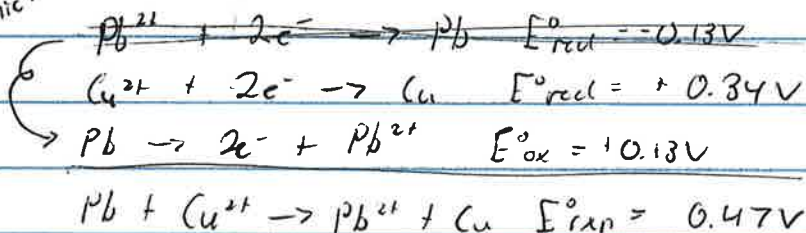 Pb²⁺ + 2e⁻ → Pb E°red = -0.13V
Cu²⁺ + 2e⁻ → Cu E°red = + 0.34V
Pb → 2e⁻ + Pb²⁺ E°ox = +0.13V
Pb + Cu²⁺ → Pb²⁺ + Cu E°rxn = 0.47V